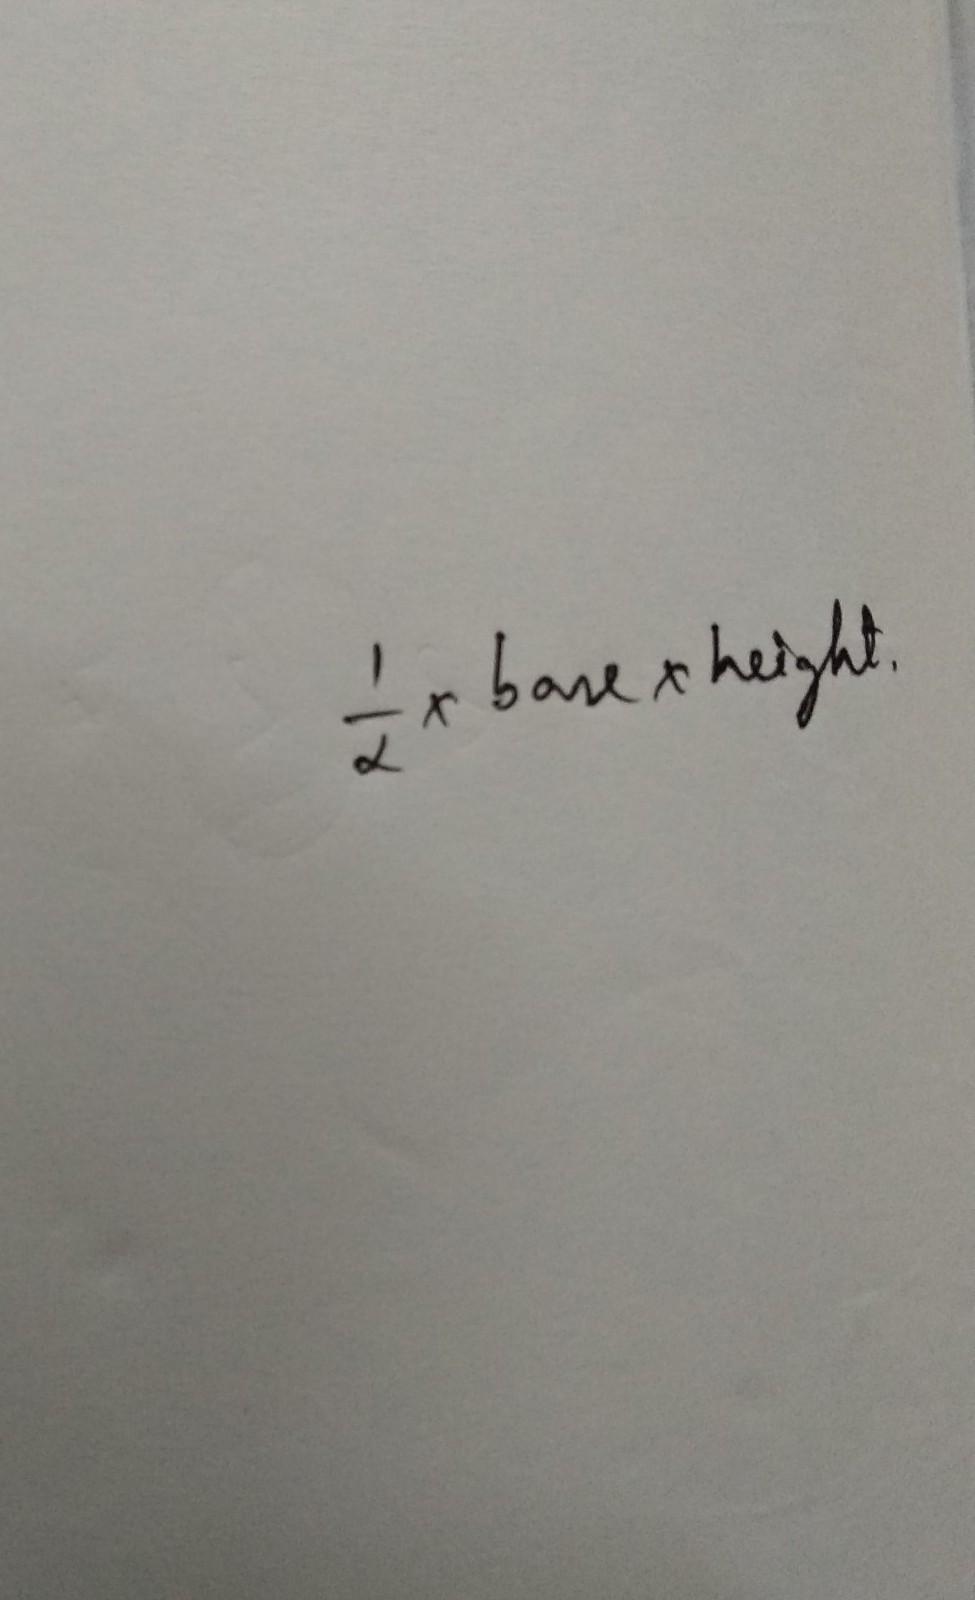 1/2 x base x height.